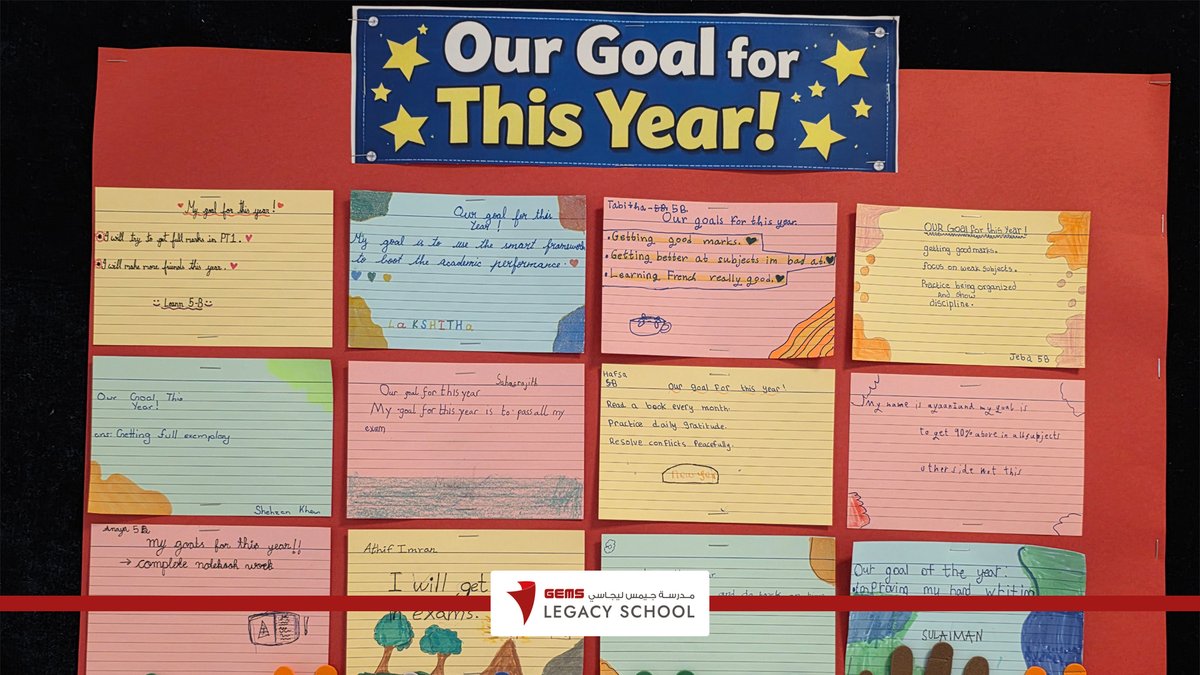 Our Goal for
This Year!
My goal for this year!
I will try to get full marks in PT1.
I will make more friends this year.
Learn 5-B
Our goal for this
Year!
My goal is to use the smart framework
to boot the academic performance.
LaKSHITHa
Tabitha 5B
Our goals for this year
Getting good marks.
Getting better at subjects im bad at.
Learning French really good.
OUR Goal for this Year!
getting good marks.
focus on weak subjects.
Practice being organized
and show
discipline.
Jeba 5B
Our Goal This
Year!
ans: Getting full exemplary
Shehzan Khan
Our goal for this year
My goal for this year is to pass all my
exam
Hafsa
5B
our goal for this year!
Read a book every month.
Practice daily gratitude.
Resolve conflicts Peacefully.
new year
My name is ayaan and my goal is
to get 90% above in all subjects
other side not this
Anaya 5B
My goals for this year!!
→ complete notebook work
Athif Imran
I will get
in exams.
Our goal of the year:
improving my hand writing
SULAIMAN
GEMS مدرسة جيمس ليجاسي
LEGACY SCHOOL